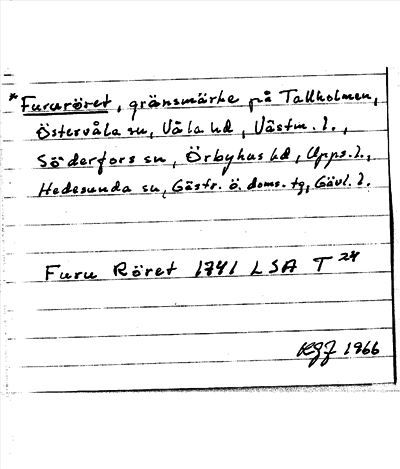 *Fururöret, gränsmärke på Tallholmen,
Östervåla sn, Våla hd, Västm. l.,
Söderfors sn, Örbyhus hd, Upps. l.,
Hedesunda sn, Gästr. ö. doms. tg, Gävl. l.
Furu Röret 1741 LSA T 24
KGJ 1966